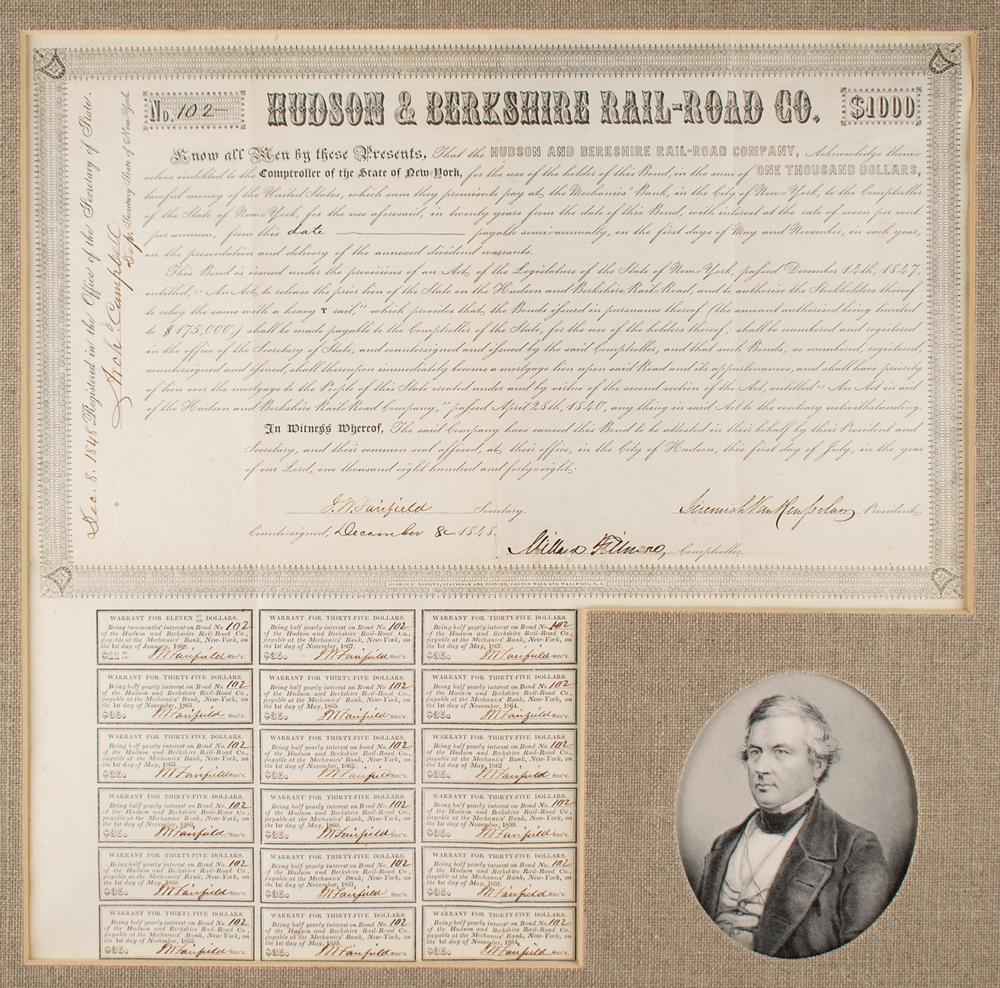 No. 102
HUDSON & BERKSHIRE RAIL-ROAD CO.
$1000
Know all Men by these Presents, That the HUDSON AND BERKSHIRE RAIL-ROAD COMPANY, Acknowledge them-
selves indebted to the Comptroller of the State of New-York, for the use of the holder of this Bond, in the sum of ONE THOUSAND DOLLARS,
lawful money of the United States, which sum they promise to pay at the Mechanics' Bank, in the City of New-York, to the Comptroller
of the State of New-York, for the use aforesaid, in twenty years from the date of this Bond, with interest at the rate of seven per cent.
per annum, from this date payable semi-annually, on the first days of May and November, in each year,
on the presentation and delivery of the annexed dividend warrants.
This Bond is issued under the provisions of an Act, of the Legislature of the State of New-York, passed December 14th, 1847,
entitled, "An Act, to release the prior lien of the State on the Hudson and Berkshire Rail Road, and to authorize the Stockholders thereof
to relay the same with a heavy T rail," which provides that the Bonds issued in pursuance thereof (the amount authorised being limited
to $175,000,) shall be made payable to the Comptroller of the State, for the use of the holders thereof; shall be numbered and registered
in the office of the Secretary of State, and countersigned and issued by the said Comptroller, and that such Bonds, so numbered, registered,
countersigned and issued, shall thereupon immediately become a mortgage lien upon said Road and its appurtenances, and shall have priority
of lien over the mortgage to the People of this State created under and by virtue of the second section of the Act, entitled "An Act in aid
of the Hudson and Berkshire Rail-Road Company," passed April 28th, 1840, any thing in said Act to the contrary notwithstanding.
In Witness Whereof, The said Company have caused this Bond to be attested in their behalf by their President and
Secretary, and their common seal affixed, at their office, in the City of Hudson, this first day of July, in the year
of our Lord, one thousand eight hundred and forty-eight.
J. W. Fairfield Secretary.
Jeremiah Van Rensselaer President.
Countersigned, December 8 1848
Millard Fillmore Comptroller
Dec. 8. 1848 Registered in the Office of the Secretary of State.
Arch'd Campbell
Dep. Secretary State of New-York.
WARRANT FOR ELEVEN DOLLARS.
Being two months' interest on Bond No. 102
of the Hudson and Berkshire Rail-Road Co.,
payable at the Mechanics' Bank, New-York, on
the 1st day of January, 1868.
$11 JW Fairfield Sec'y.
WARRANT FOR THIRTY-FIVE DOLLARS.
Being half yearly interest on Bond No. 102
of the Hudson and Berkshire Rail-Road Co.,
payable at the Mechanics' Bank, New-York, on
the 1st day of November, 1867.
$35. JW Fairfield Sec'y.
WARRANT FOR THIRTY-FIVE DOLLARS.
Being half yearly interest on Bond No. 102
of the Hudson and Berkshire Rail-Road Co.,
payable at the Mechanics' Bank, New-York, on
the 1st day of May, 1867.
$35. JW Fairfield Sec'y.
WARRANT FOR THIRTY-FIVE DOLLARS.
Being half yearly interest on Bond No. 102
of the Hudson and Berkshire Rail-Road Co.,
payable at the Mechanics' Bank, New-York, on
the 1st day of November, 1865.
$35. JW Fairfield Sec'y.
WARRANT FOR THIRTY-FIVE DOLLARS.
Being half yearly interest on Bond No. 102
of the Hudson and Berkshire Rail-Road Co.,
payable at the Mechanics' Bank, New-York, on
the 1st day of May, 1865.
$35. JW Fairfield Sec'y.
WARRANT FOR THIRTY-FIVE DOLLARS.
Being half yearly interest on Bond No. 102
of the Hudson and Berkshire Rail-Road Co.,
payable at the Mechanics' Bank, New-York, on
the 1st day of November, 1864.
$35. JW Fairfield Sec'y.
WARRANT FOR THIRTY-FIVE DOLLARS.
Being half yearly interest on Bond No. 102
of the Hudson and Berkshire Rail-Road Co.,
payable at the Mechanics' Bank, New-York, on
the 1st day of May, 1863.
$35. JW Fairfield Sec'y.
WARRANT FOR THIRTY-FIVE DOLLARS.
Being half yearly interest on Bond No. 102
of the Hudson and Berkshire Rail-Road Co.,
payable at the Mechanics' Bank, New-York, on
the 1st day of November, 1862.
$35. JW Fairfield Sec'y.
WARRANT FOR THIRTY-FIVE DOLLARS.
Being half yearly interest on Bond No. 102
of the Hudson and Berkshire Rail-Road Co.,
payable at the Mechanics' Bank, New-York, on
the 1st day of May, 1862
$35. JW Fairfield Sec'y.
WARRANT FOR THIRTY-FIVE DOLLARS.
Being half yearly interest on Bond No. 102
of the Hudson and Berkshire Rail-Road Co.,
payable at the Mechanics' Bank, New-York, on
the 1st day of November, 1860.
$35. JW Fairfield Sec'y.
WARRANT FOR THIRTY-FIVE DOLLARS.
Being half yearly interest on Bond No. 102
of the Hudson and Berkshire Rail-Road Co.,
payable at the Mechanics' Bank, New-York, on
the 1st day of May, 1860.
$35. JW Fairfield Sec'y.
WARRANT FOR THIRTY-FIVE DOLLARS.
Being half yearly interest on Bond No. 102
of the Hudson and Berkshire Rail-Road Co.,
payable at the Mechanics' Bank, New-York, on
the 1st day of November, 1859.
$35. JW Fairfield Sec'y.
WARRANT FOR THIRTY-FIVE DOLLARS.
Being half yearly interest on Bond No. 102
of the Hudson and Berkshire Rail-Road Co.,
payable at the Mechanics' Bank, New-York, on
the 1st day of May, 1858.
$35. JW Fairfield Sec'y.
WARRANT FOR THIRTY-FIVE DOLLARS.
Being half yearly interest on Bond No. 102
of the Hudson and Berkshire Rail-Road Co.,
payable at the Mechanics' Bank, New-York, on
the 1st day of November, 1857.
$35. JW Fairfield Sec'y.
WARRANT FOR THIRTY-FIVE DOLLARS.
Being half yearly interest on Bond No. 102
of the Hudson and Berkshire Rail-Road Co.,
payable at the Mechanics' Bank, New-York, on
the 1st day of May, 1857.
$35. JW Fairfield Sec'y.
WARRANT FOR THIRTY-FIVE DOLLARS.
Being half yearly interest on Bond No. 102
of the Hudson and Berkshire Rail-Road Co.,
payable at the Mechanics' Bank, New-York, on
the 1st day of November, 1855.
$35. JW Fairfield Sec'y.
WARRANT FOR THIRTY-FIVE DOLLARS.
Being half yearly interest on Bond No. 102
of the Hudson and Berkshire Rail-Road Co.,
payable at the Mechanics' Bank, New-York, on
the 1st day of May, 1855.
$35. JW Fairfield Sec'y.
WARRANT FOR THIRTY-FIVE DOLLARS.
Being half yearly interest on Bond No. 102
of the Hudson and Berkshire Rail-Road Co.,
payable at the Mechanics' Bank, New-York, on
the 1st day of November, 1854.
$35. JW Fairfield Sec'y.